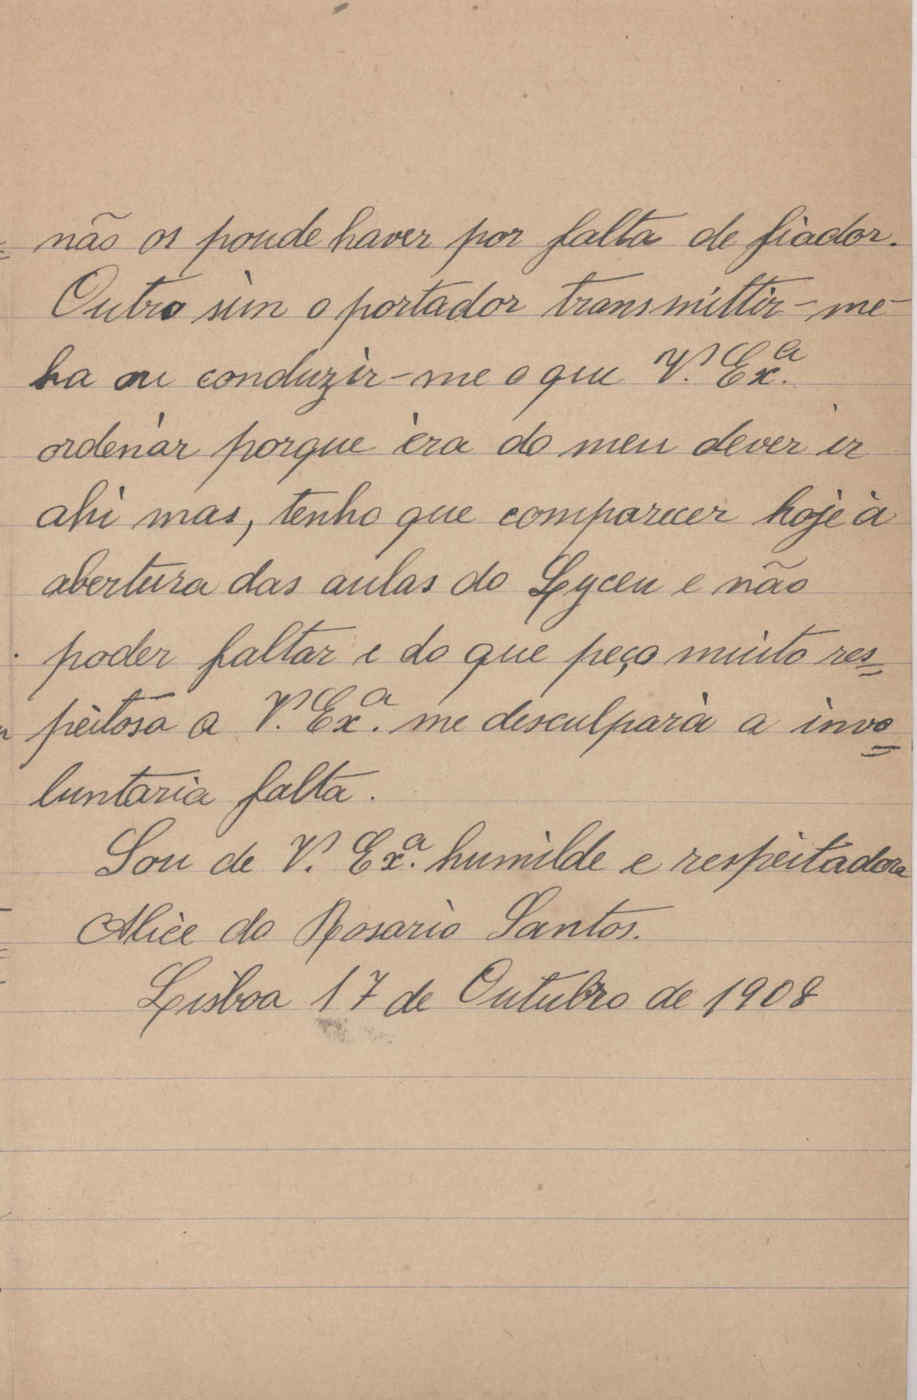 não os poude haver por falta de fiador.
Outro sim o portador transmittir-me-
ha ou conduzir-me o que V. Ex.ª
ordenár porque èra do meu dever ir
ahi mas, tenho que comparecer hoje à
abertura das aulas do Lyceu e não
poder faltar e do que peço muito res=
peitosa a V. Ex.ª me desculparà a invo=
luntaria falta.
Sou de V. Ex.ª humilde e respeitadora
Alice do Rosario Santos.
Lisboa 17 de Outubro de 1908